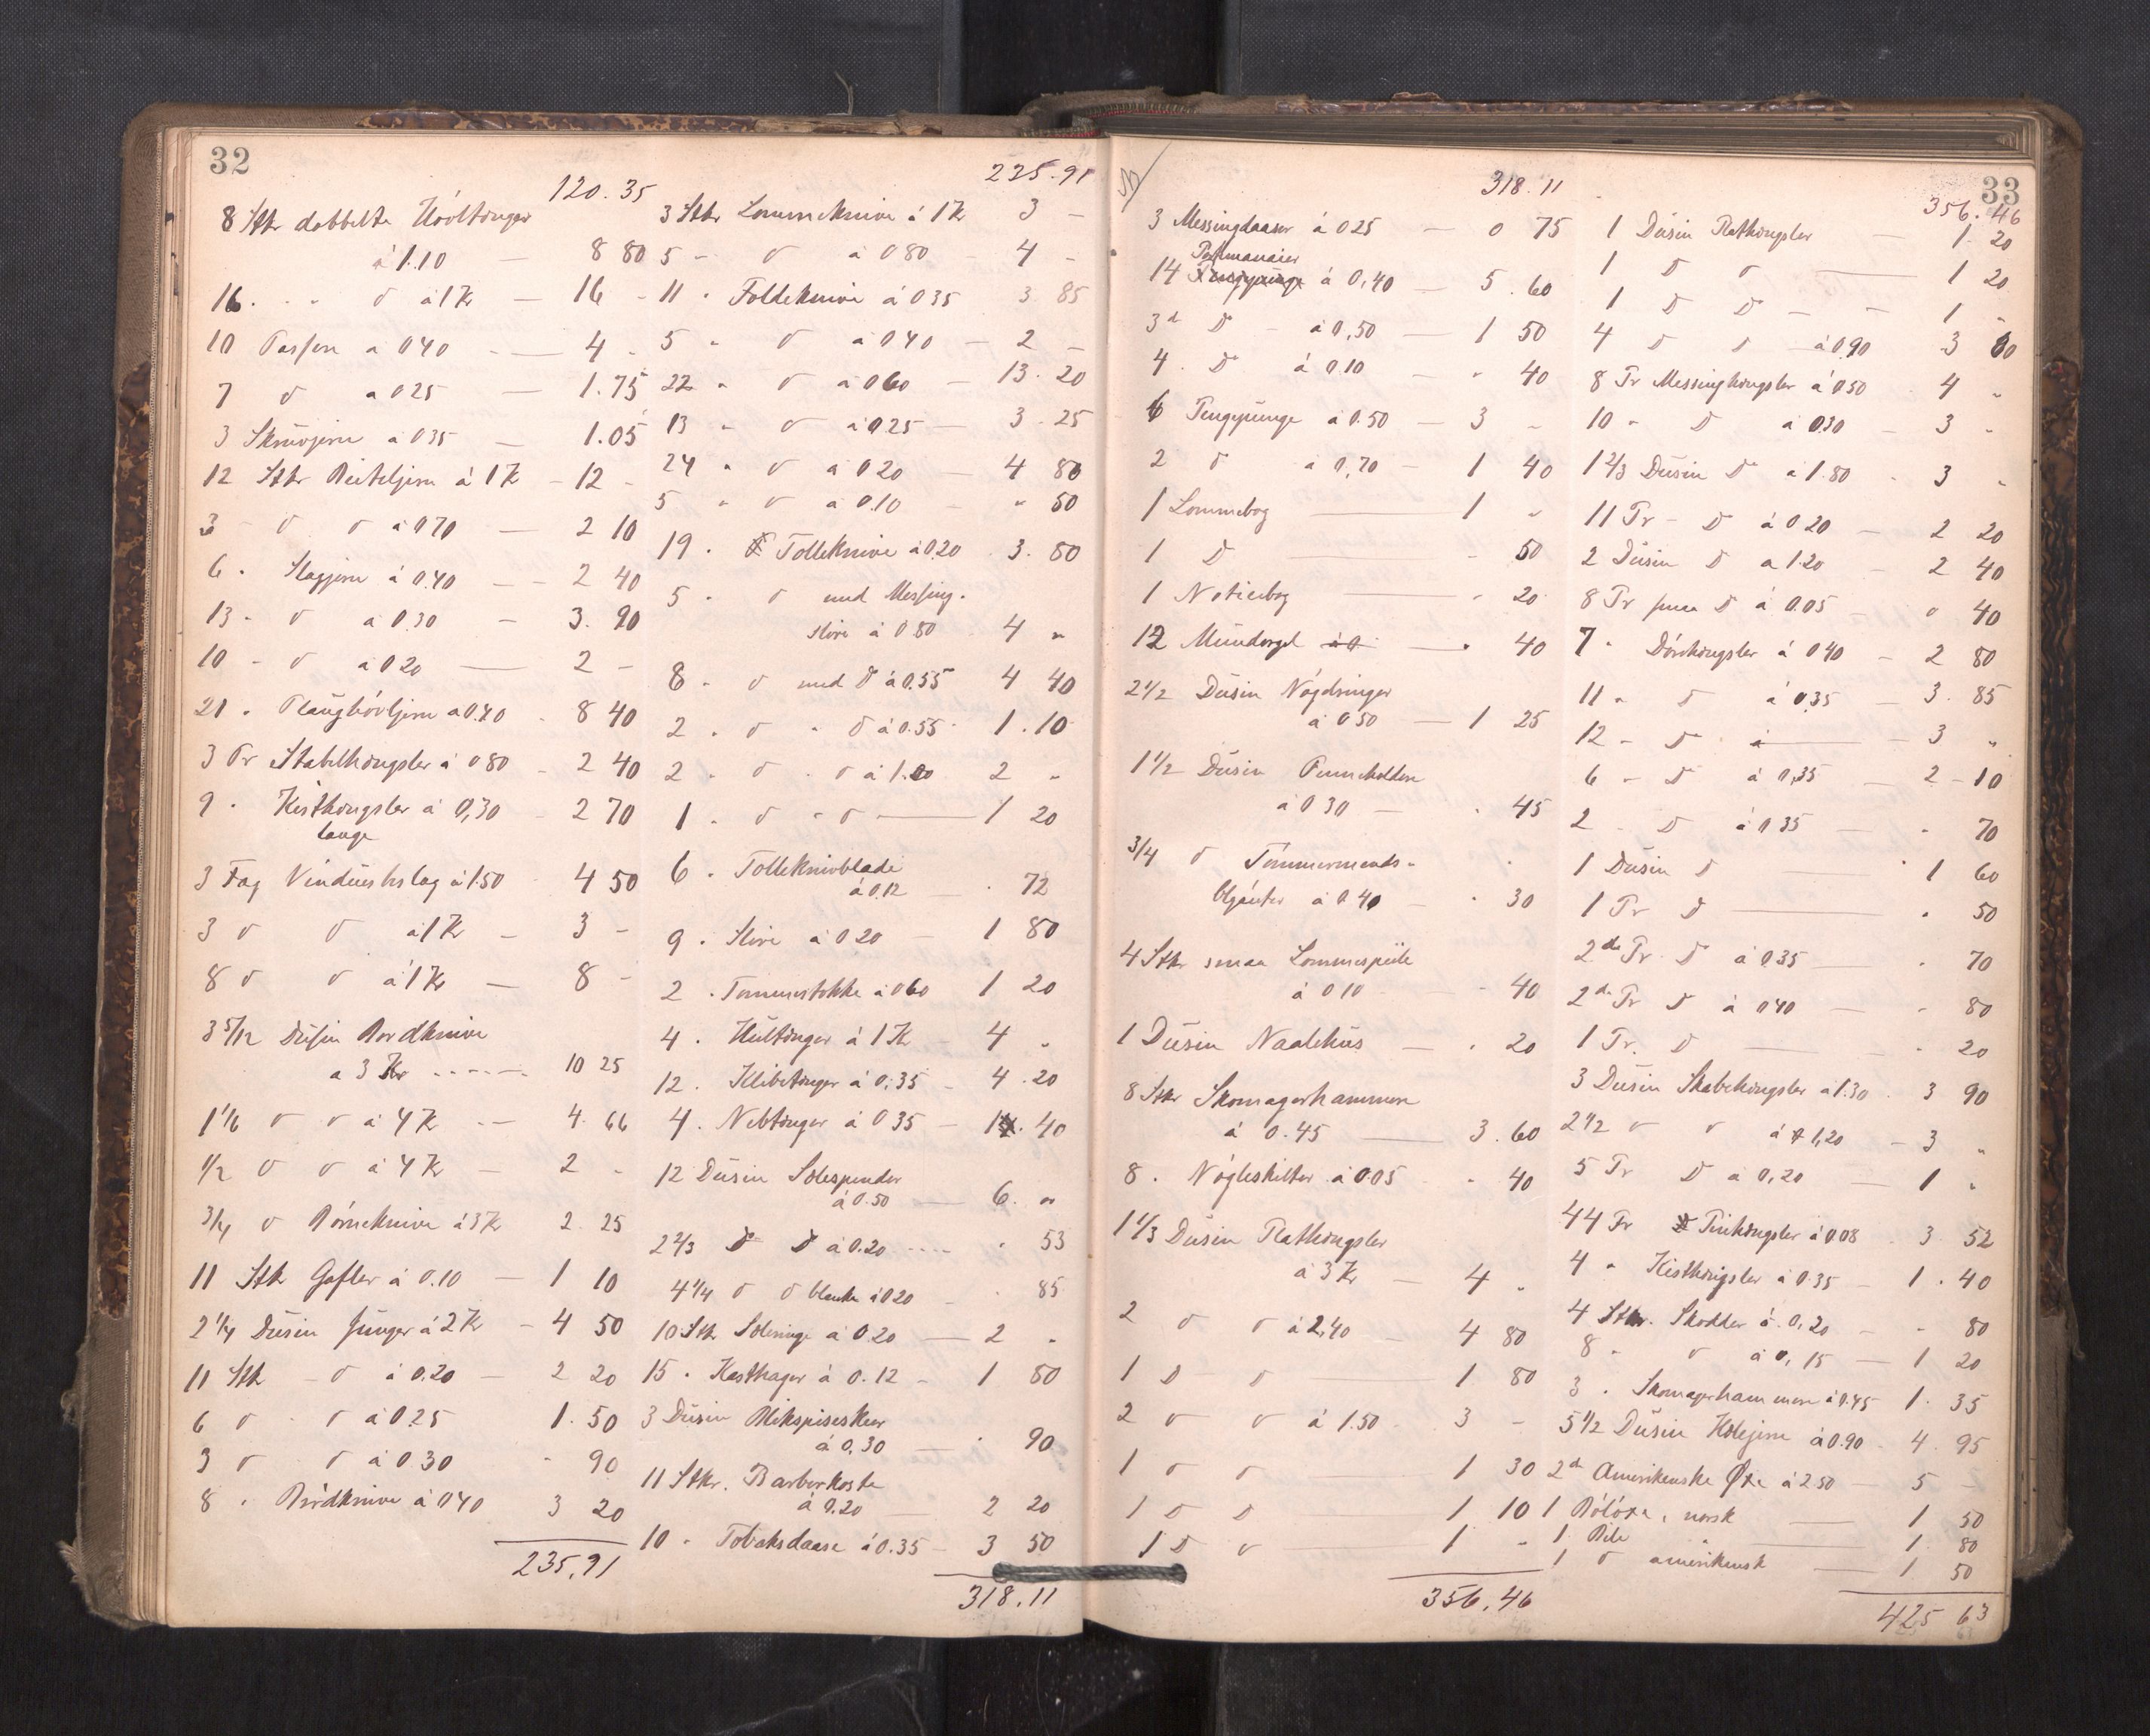 32
120.35
8 Stk dobbelte Hövltænger
à 1.10 — 8 80
16. " d à 1 Kr — 16 -
10 Passere a 0 40 — 4 -
7 d a 0 25 — 1.75
3 Skruvjern a 0 35 — 1.05
12 Stkr Beiteljern à 1 K — 12 -
3 - d d à 0 70 — 2 10
6 . Slagjern à 0.40 — 2 40
13 - d à 0.30 — 3.90
10 - d à 0 20 — 2 -
21 . Plaughövljern a 0.40 - 8 40
3 Pr Stabelhængsler à 0 80 - 2 40
9 . Kisthængsler à 0,30 - 2 70
lange
3 Fag Vindueshslag à 1.50 - 4 50
3 d d à 1 Kr — 3 -
8 d d à 1 Kr — 8 -
3 5/12 Dusin Bordknive
a 3 Kr ---- 10 25
1 1/6 d d à 4 K -- 4.66
1/2 d d à 4 Kr — 2 -
3/4 d Börneknive à 3 Kr 2 25
11 Stk Gafler à 0.10 — 1 10
2 1/4 Dusin Junger à 2 Kr - 4 50
11 Stk - d à 0.20 — 2 20
6 d - d à 0.25 1.50
3 d - d à 0 30 - 90
8 . Brödknive à 0 40 3 20
235,91
225.91
3 Stkr Lommeknive à 1 K 3 -
5 - d à 0 80 - 4 -
11 . Foldeknive à 0 35 3.85
5 - d a 0 40 — 2 -
22 " d à 0 60 — 13.20
13 " d à 0 25 — 3.25
24 " d a 0 20 — 4 80
5 " d a 0.10 — " 50
19 . Tolleknive à 0.20 . 3.80
5 . d med Messing-
slire à 0 80 . 4 "
8 - d med d à 0.55 4 40
2 . d " d à 0.55 1.10
2 . d . d à 1.00 2 -
1 . d " d — 1 20
6 . Tolleknivblade
à 0.12 — . 72
9 . Slire à 0 20 — 1 80
2 . Tommestokke à 0 60 1 20
4 . Hultænger à 1 K — 4 "
12 . Klibetænger à 0.35 - 4.20
4 . Nebtænger à 0 35 — 1.40
12 Dusin Solespender
à 0.50 — 6. "
2 2/3 d d à 0.20 .... . 53
4 1/4 d d blanke à 0 20 - . 85
10 Stk Soleringe à 0.20 — 2 "
15 . Kasthager à 0.12 - 1 80
3 Dusin Blikspiseskeer
à 0.30 — . 90
11 Stkr. Barberkoste
à 0.20 — 2 20
10 . Tobaksdaase à 0.35 — 3 50
318.11
33
318.11
3 Messingdaaser à 0 25 — 0 75
Portmonaier
14 Pengepunge à 0,40 — 5.60
3 d D - à 0,50 — 1 50
4 . D à 0 10 — " 40
6 Pengepunge à 0.50 — 3 "
2 d à 0,70 — 1 40
1 Lommebog — 1 "
1 D — - 50
1 Notisbog — " 20
12 Mundorgel à 0 — . 40
2 1/2 Dusin Nögelringer
à 0 50 — 1 25
1 1/2 Dusin Penneholdere
à 0 30 — . 45
3/4 d Tömmermands-
blyanter à 0 40 — . 30
4 Stkr smaa Lommespeile
à 0 10 — - 40
1 Dusin Naalehus — . 20
8 Stkr Skomagerhammere
à 0.45 — 3.60
8 . Nögleskilter à 0.05 . " 40
1 1/3 Dusin Plathængsler
à 3 Kr — 4 "
2 d d à 2,40 — 4 80
1 D d — 1 80
2 d d à 1.50 — 3 -
1 d d — 1 30
1 D D — 1 10
1 D d — 1 "
356.46
356.46
1 Dusin Plathængsler — 1. 20
1 D d — 1 20
1 D D — 1 -
4 D d — à 0.90 3 60
8 Pr Messinghængsler à 0.50 . 4 "
10 " D à 0.30 — 3 "
1 2/3 Dusin D à 1.80 . 3 "
11 Pr - D à 0 20 — 2 20
2 Dusin D a 1.20 — 2 40
8 Pr smaa D à 0.05 — 0 40
7 . Dörhængsler à 0 40 — 2 80
11 " D à 0,35 — 3.85
12 - D à — 3 "
6 - D à 0,35 — 2 - 10
2 . D à 0 35 — . 70
1 Dusin D — 1 60
1 Pr D — . 50
2 d Pr. D à 0 35 — . 70
2 d Pr D à 0 40 — " 80
1 Pr. D — . 20
3 Dusin Skabehængsler à 1.30 . 3 90
2 1/2 d d à 1,20 — 3 "
5 Pr D à 0,20 — 1 "
44 Pr Pinhængsler à 0 08 . 3 52
4 " Kisthængsler à 0.35 — 1.40
4 Stkr. Skodder à 0.20 — - 80
8 " d à 0,15 — 1 20
3 . Skomagerhammere à 0.45 1. 35
5 1/2 Dusin Hælejern à 0.90 . 4.95
2 d Amerikanske Öxe à 2 50 — 5 -
1 Bölöxe, norsk — 1 50
1 Bile — 1. 80
1 d amerikansk — 1 50
425 63